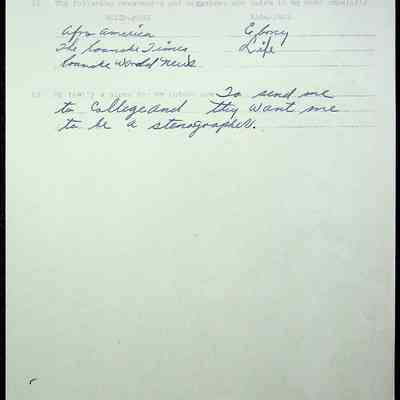 The following newspapers and magazines are taken in my home regularly
Newspapers Magazines
Afro America Ebony
The Roanoke Times Life
Roanoke World News
My family's plans for my future are To send me
to College and they want me
to be a stenographer.